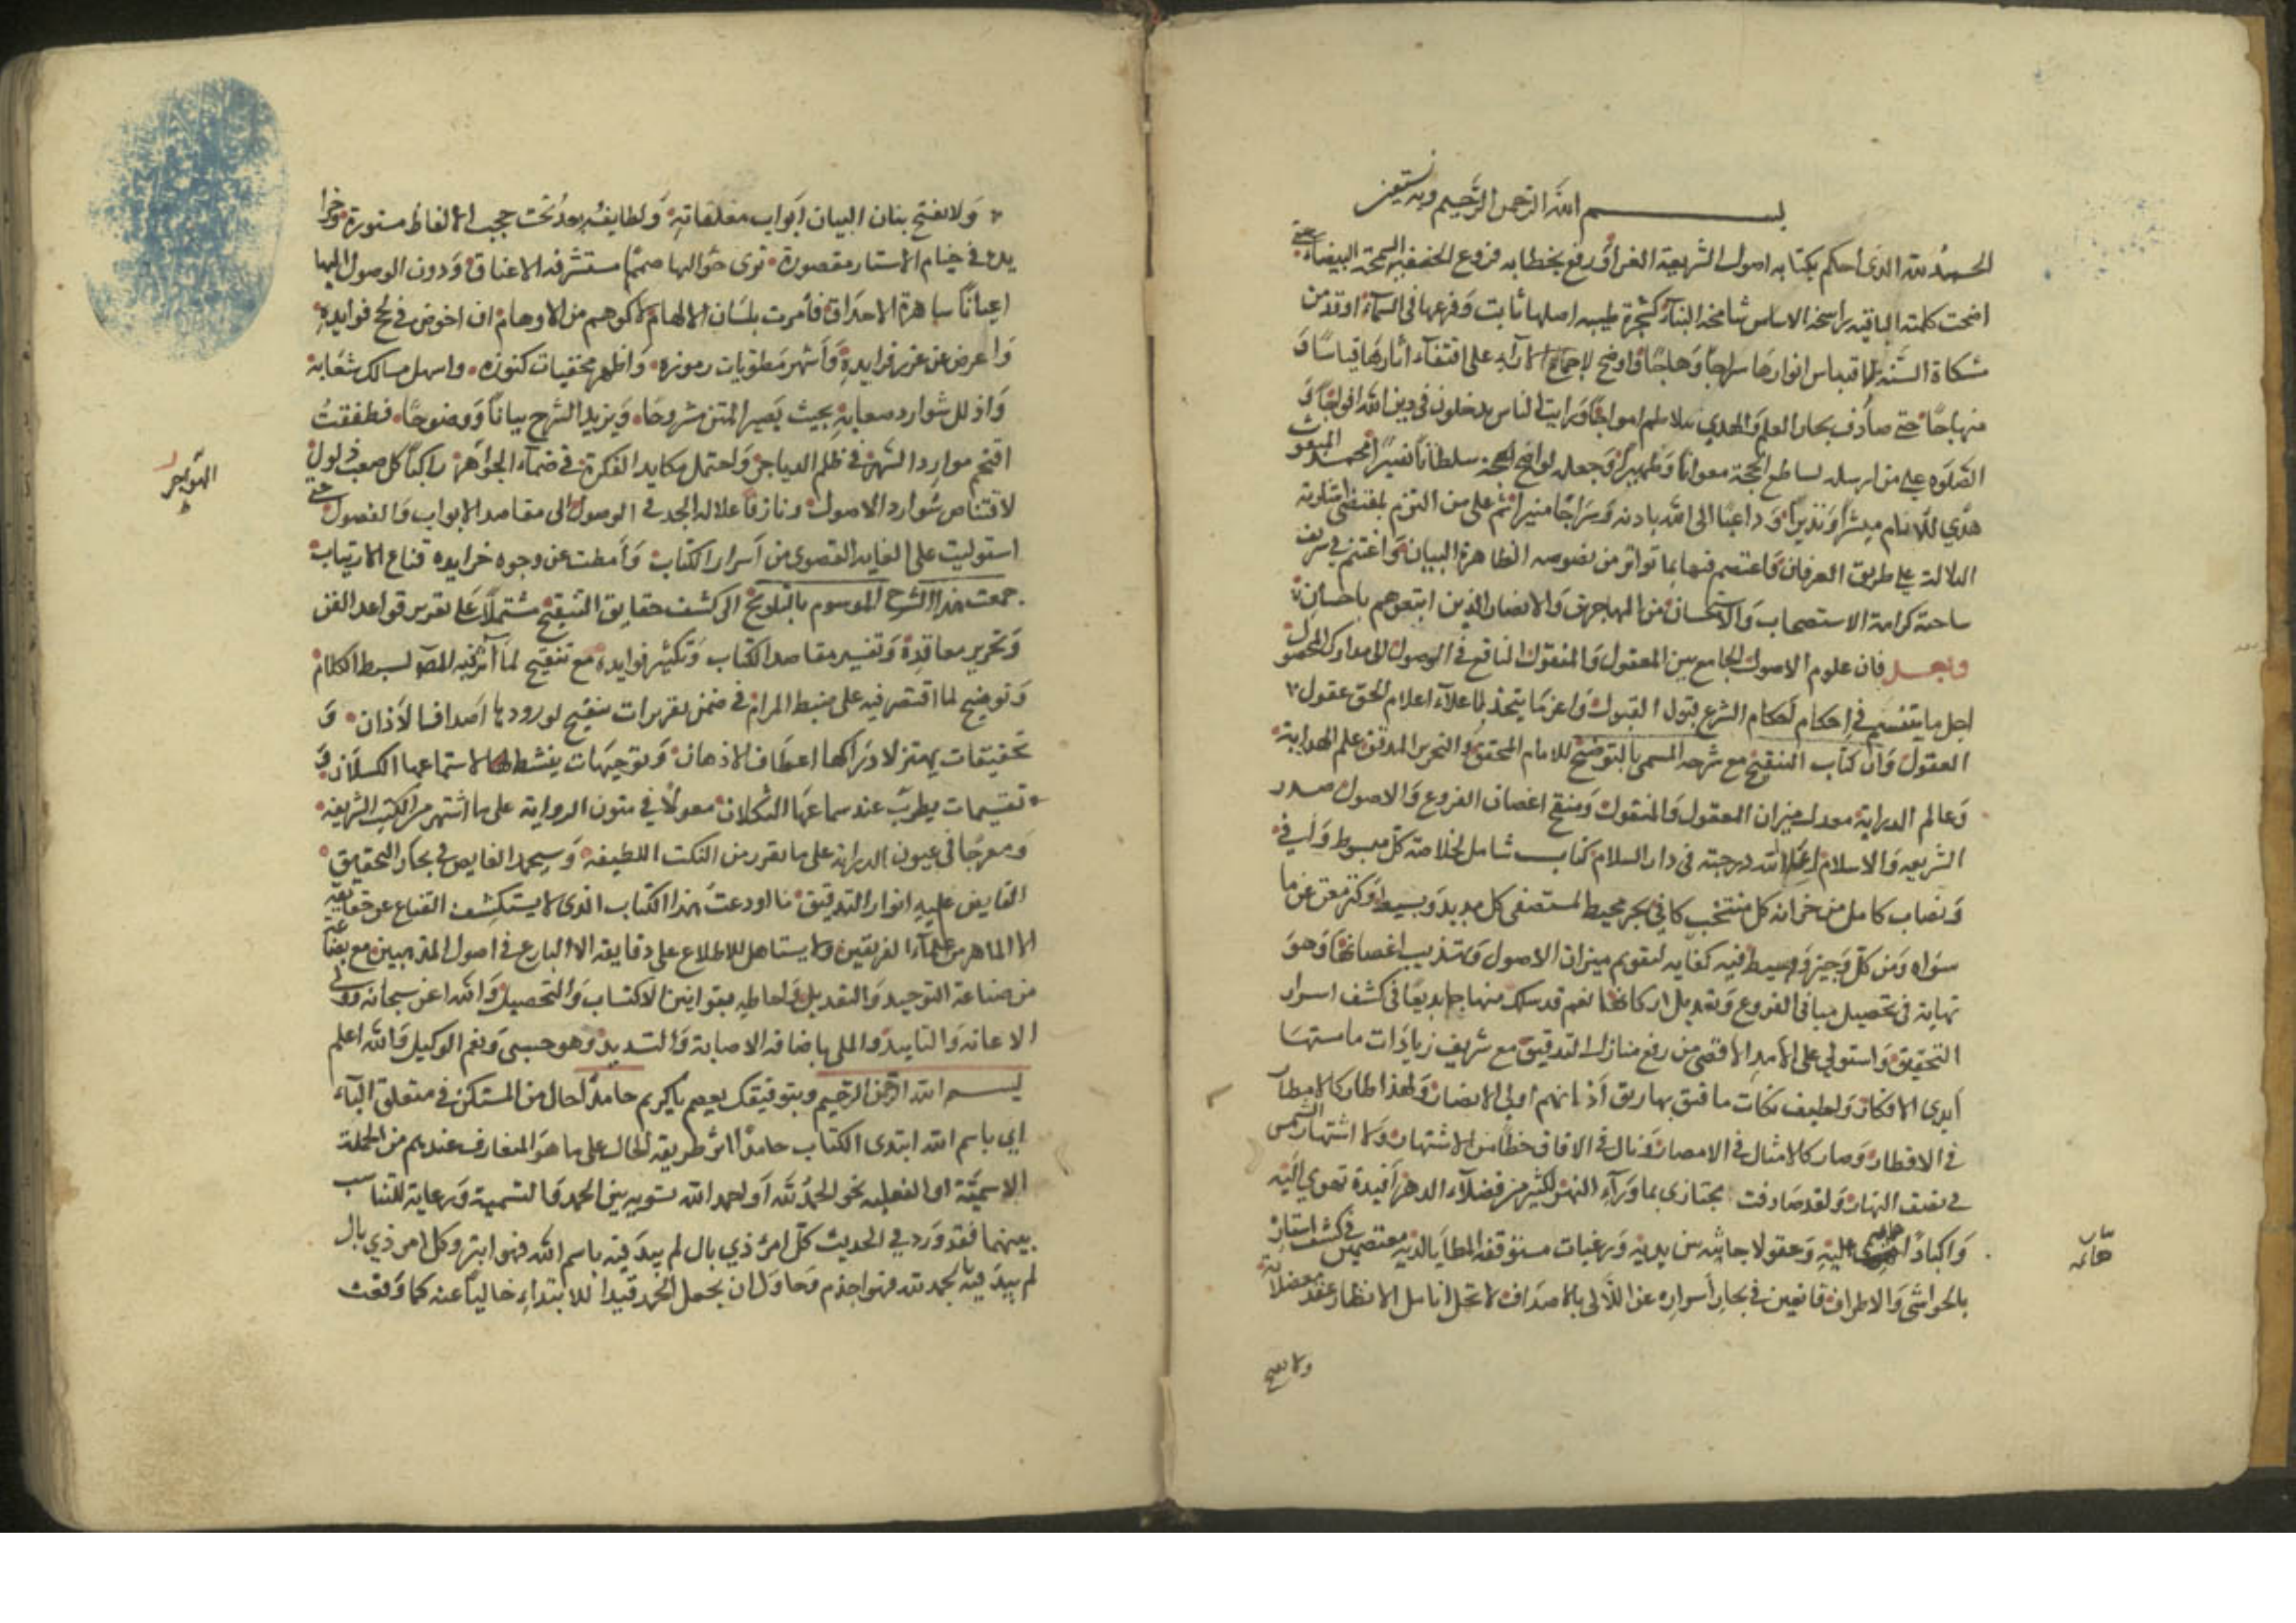 بسم الله الرحمن الرحيم وبه نستعين
الحمد لله الذى احكم بكتابه اصول الشريعة الغراء ورفع بخطابه فروع الحنيفية السمحة البيضاء حتى
اضحت كلمته الباقية راسخة الاساس شامخة البناء كشجرة طيبة اصلها ثابت وفرعها فى السماء اوقد من
مشكاة السنة لاقتباس انوارها سراجا وهاجا واوضح لاجماع الآراء على اقتفاء اثارها قياسا و
منهاجا حتى صادف بحار العلم والهدى تتلاطم امواجا ورايت الناس يدخلون فى دين الله افواجا و
الصلوة على من ارسله لساطع الحجة معوانا وظهيرا وجعله لواضح المحجة سلطانا نصيرا محمد المبعوث
هدى للانام مبشرا ونذيرا وداعيا الى الله باذنه وسراجا منيرا ثم على من التزم بمقتضى اشارته
الدلالة على طريق العرفان واعتصم فيها بما تواتر من نصوصه الظاهرة البيان واغتنم فى شريف
ساحته كرامة الاستصحاب والاستحسان من المهاجرين والانصار والذين اتبعوهم باحسان
وبعد فان علوم الاصول الجامع بين المعقول والمنقول النافع فى الوصول الى مدارك المحصول
اجل ما يتنسم فى احكام احكام الشرع قبول القبول واعز ما يتخذ لاعلاء اعلام الحق عقول
العقول وان كتاب التنقيح مع شرحه المسمى بالتوضيح للامام المحقق والنحرير المدقق علم الهداية
وعالم الدراية معدل ميزان المعقول والمنقول ومنقح اغصان الفروع والاصول صدر
الشريعة والاسلام اعلى الله درجته فى دار السلام كتاب شامل لخلاصة كل مبسوط وافى
ونصاب كامل من خزانة كل منتخب كافى بحر محيط لمستصفى كل مديد وبسيط وكنز مغن عن ما
سواه ومن كل وجيز ووسيط فيه كفاية لتقويم ميزان الاصول وتهذيب اغصانها وهو
نهاية فى تحصيل مبانى الفروع وتعديل اركانها نعم قد سلك منهاجا بديعا فى كشف اسرار
التحقيق واستولى على الامد الاقصى من رفع منازل التدقيق مع شريف زيادات ما مستها
ايدى الافكار ولطيف نكات ما فتق بها رتق آذانهم اولى الابصار ولهذا طار كالامطار
فى الاقطار وصار كالامثال فى الامصار ونال فى الافاق حظا من الاشتهار ولا اشتهار الشمس
فى نصف النهار ولقد صادفت مجتازى بما وراء النهر لكثير من فضلاء الدهر افئدة تهوى اليه
واكبادا هائمة عليه وعقولا جاثية بين يديه ورغبات مستوقفة المطايا لديه معتصمين فى كشف استاره
بالحواشى والاطراف قانعين فى بحار اسراره عن اللآلى بالاصداف لا تحل انامل الانظار عقد معضلاته
هائمة
ولا يفتح
ولا يفتح بنان البيان ابواب مغلقاته ولطايفه بعد تحت حجب الالفاظ مستورة وخرا
يده فى خيام الاستار مقصورة ترى حواليها همما مستشرفة الاعناق ودون الوصول اليها
اعيانا ساهرة الاحداق فأمرت بلسان الالهام لا كوهم من الاوهام ان اخوض فى لجج فوايده
واعوض عن غرر فرايده وأنشر مطويات رموزه واظهر مخفيات كنوزه واسهل مسالك شعابه
واذلل شوارد صعابه بحيث يصير المتن مشروحا ويزيد الشرح بيانا ووضوحا فطفقت
اقتحم موارد السهر فى ظلم الدياجر واحتمل مكايد الفكرة فى ظماء الهواجر راكبا كل صعب وذلول
الهواجر
لاقتناص شوارد الاصول ونازفا علالة الجد فى الوصول الى مقاصد الابواب والفصول حتى
استوليت على الغاية القصوى من أسرار الكتاب وأمطت عن وجوه خرايده قناع الارتياب
جمعت هذا الشرح الموسوم بالتلويح الى كشف حقايق التنقيح مشتملا على تقرير قواعد الفن
وتحرير معاقده وتفسير مقاصد الكتاب وتكثير فوايده مع تنقيح لما آثر فيه المصنف بسط الكلام
وتوضيح لما اقتصر فيه على ضبط المرام فى ضمن تقريرات تنفتح لورودها اصداف الآذان و
تحقيقات يهتز لادراكها اعطاف الاذهان وتوجيهات ينشط لاستماعها الكسلان و
تقسيمات يطرب عند سماعها الثكلان معولا فى متون الرواية على ما اشتهر من الكتب الشريفة
ومعرجا فى عيون الدراية على ما تقرر من النكت اللطيفة وسيحمد الغايص فى بحار التحقيق
الفايض عليه انوار التدقيق ما اودعت هذا الكتاب الذى لا يستكشف القناع عن حقايقه
الا الماهر من علماء الفريقين ولا يستاهل للاطلاع على دقايقه الا البارع فى اصول المذهبين مع بضاعة
من صناعة التوجيه والتعديل واحاطة بقوانين الاكتساب والتحصيل والله اعز سبحانه ولى
الاعانة والتاييد والملى باضافة الاصابة والتسديد وهو حسبى ونعم الوكيل والله اعلم
بسم الله الرحمن الرحيم وبتوفيقك يعصم يا كريم حامدا حال من المستكن فى متعلق الباء
اى باسم الله ابتدى الكتاب حامدا آثر طريقة الحال على ما هو المتعارف عندهم من الجملة
الاسمية او الفعلية نحو الحمد لله أو احمد الله تسوية بين الحمد والتسمية ورعاية للتناسب
بينهما فقد ورد فى الحديث كل امر ذى بال لم يبدء فيه باسم الله فهو ابتر وكل امر ذى بال
لم يبدء فيه بالحمد لله فهو اجذم فحاول ان يجعل الحمد قيدا للابتداء خاليا عنه كما وقعت